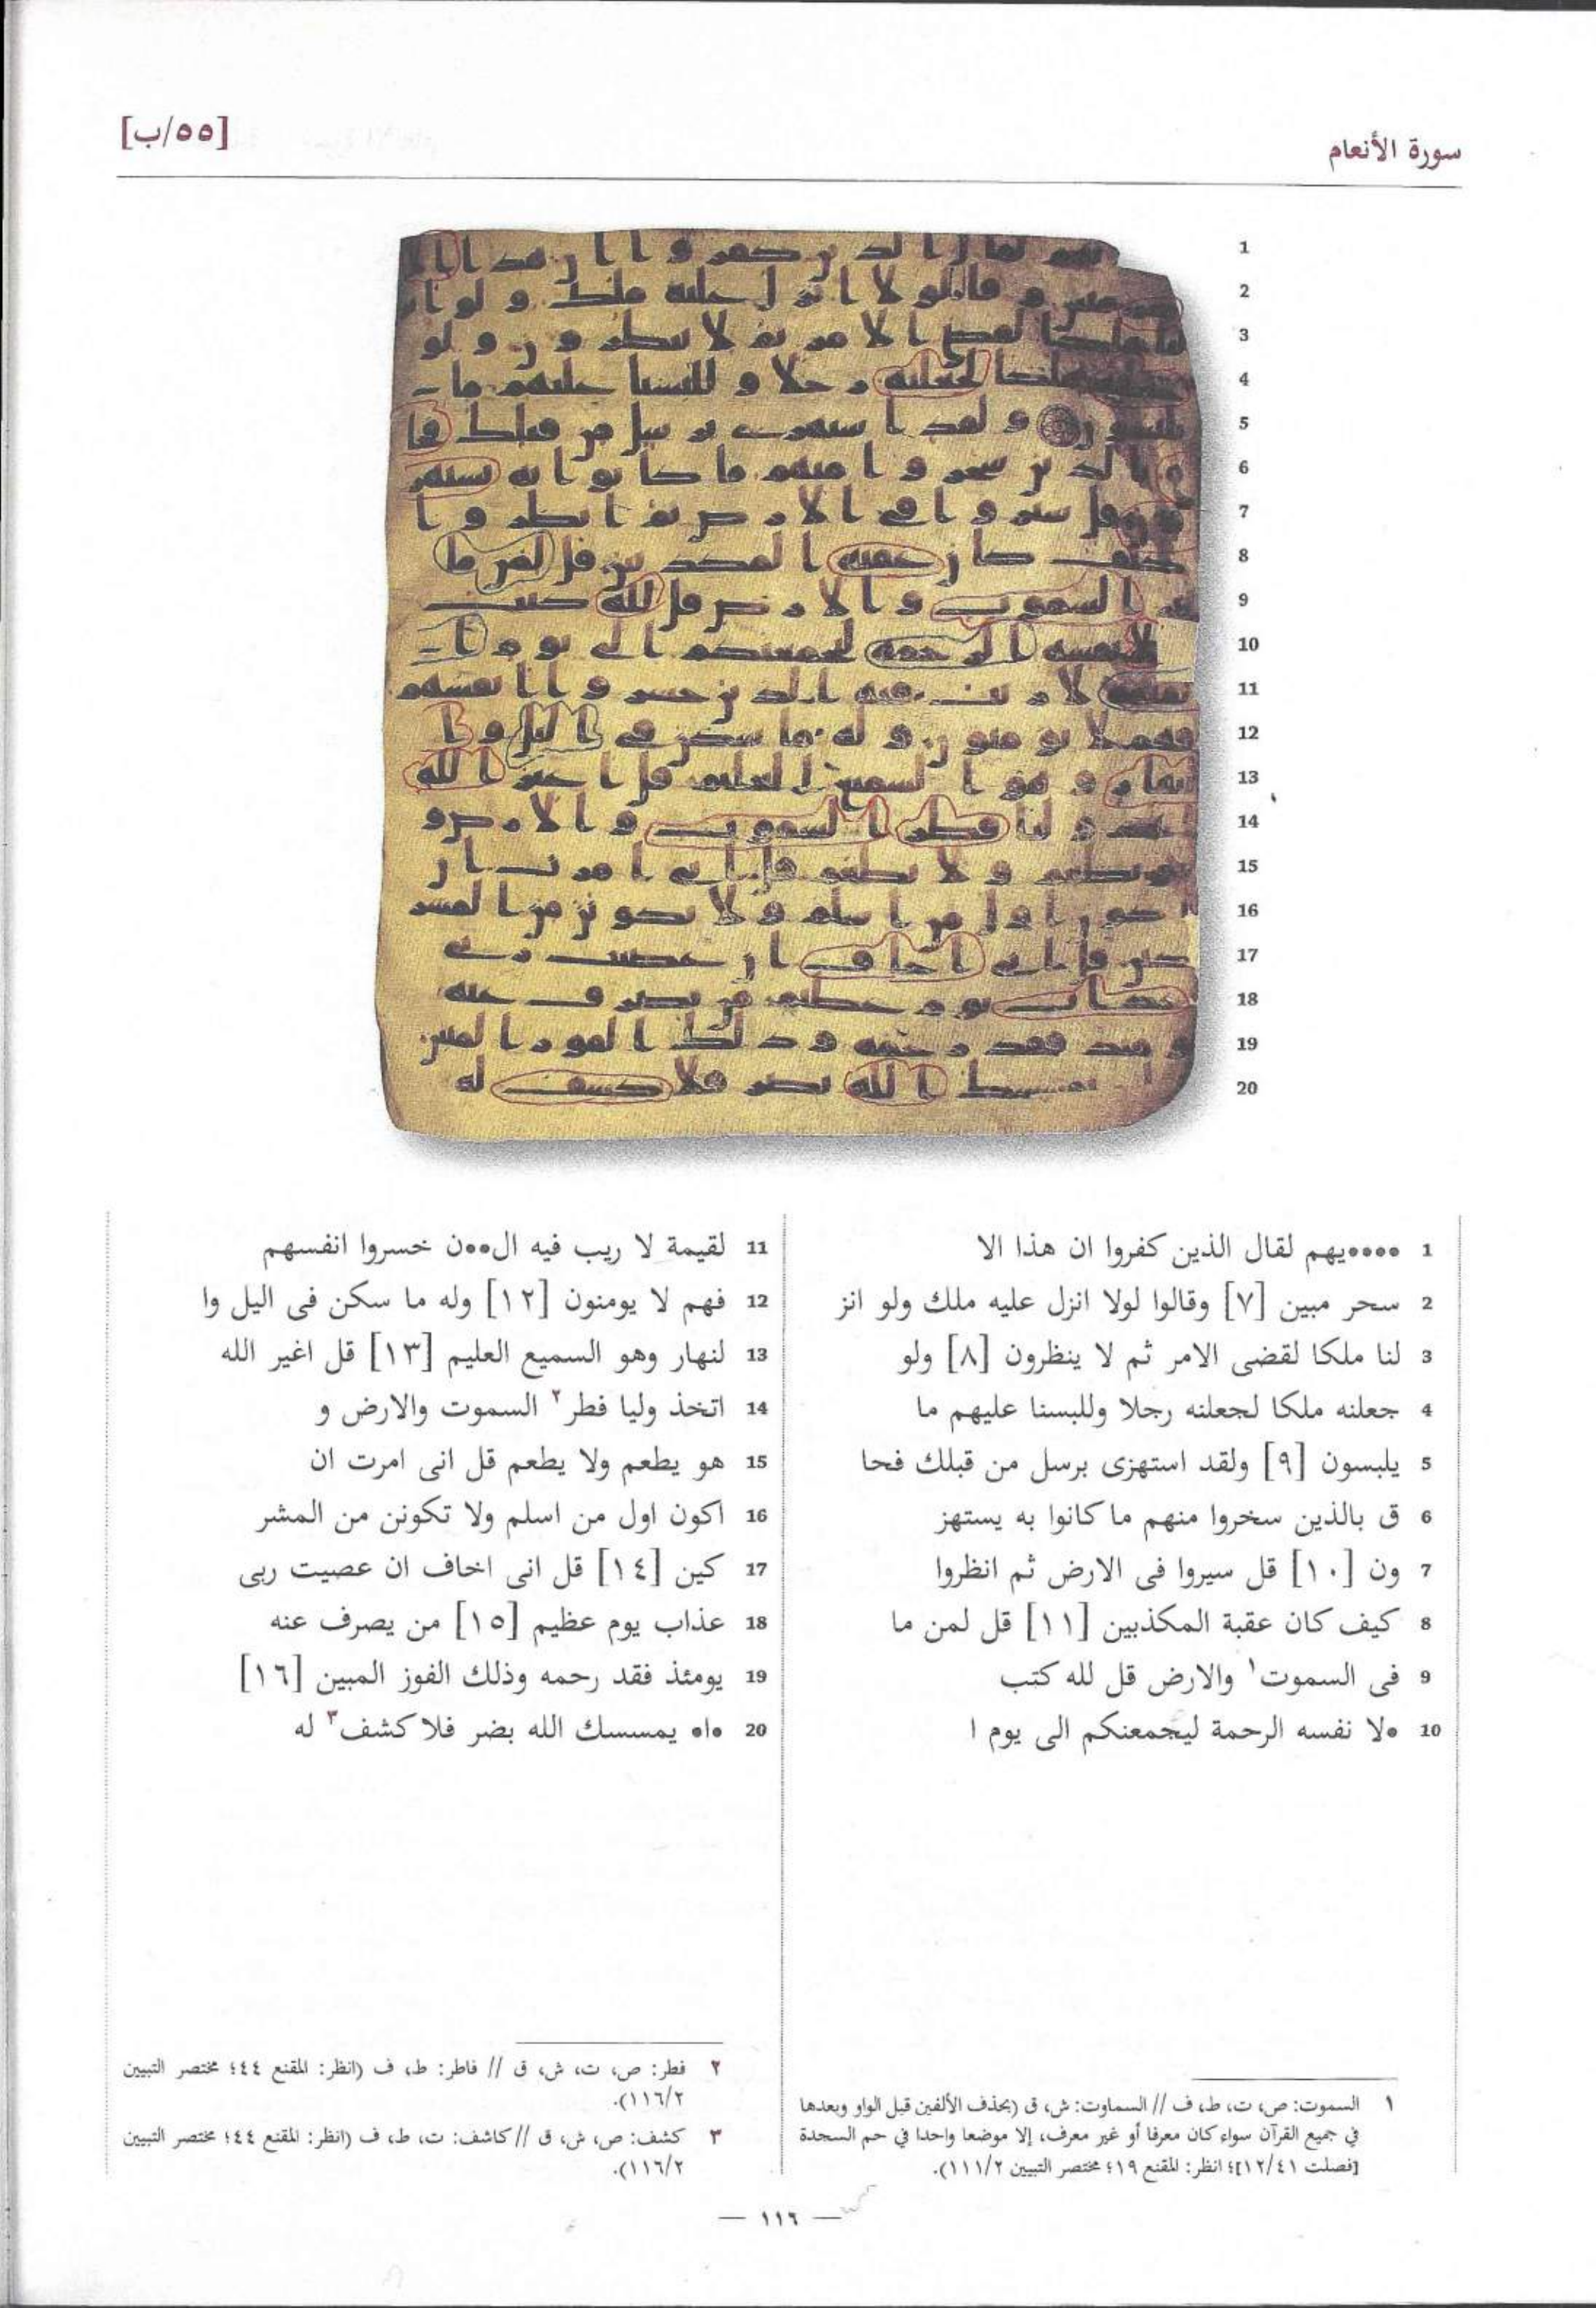 سورة الأنعام
[٥٥/ب]
1 ••••يهم لقال الذين كفروا ان هذا الا
2 سحر مبين [٧] وقالوا لولا انزل عليه ملك ولو انز
3 لنا ملكا لقضى الامر ثم لا ينظرون [٨] ولو
4 جعلنه ملكا لجعلنه رجلا وللبسنا عليهم ما
5 يلبسون [٩] ولقد استهزى برسل من قبلك فحا
6 ق بالذين سخروا منهم ما كانوا به يستهز
7 ون [١٠] قل سيروا فى الارض ثم انظروا
8 كيف كان عقبة المكذبين [١١] قل لمن ما
9 فى السموت١ والارض قل لله كتب
10 •لا نفسه الرحمة ليجمعنكم الى يوم ا
11 لقيمة لا ريب فيه ال••ن خسروا انفسهم
12 فهم لا يومنون [١٢] وله ما سكن فى اليل وا
13 لنهار وهو السميع العليم [١٣] قل اغير الله
14 اتخذ وليا فطر٢ السموت والارض و
15 هو يطعم ولا يطعم قل انى امرت ان
16 اكون اول من اسلم ولا تكونن من المشر
17 كين [١٤] قل انى اخاف ان عصيت ربى
18 عذاب يوم عظيم [١٥] من يصرف عنه
19 يومئذ فقد رحمه وذلك الفوز المبين [١٦]
20 •ا• يمسسك الله بضر فلا كشف٣ له
١ السموت: ص، ت، ط، ف // السماوت: ش، ق (بحذف الألفين قبل الواو وبعدها
في جميع القرآن سواء كان معرفا أو غير معرف، إلا موضعا واحدا في حم السجدة
[فصلت ١٢/٤١]؛ انظر: المقنع ١٩؛ مختصر التبيين ١١١/٢).
٢ فطر: ص، ت، ش، ق // فاطر: ط، ف (انظر: المقنع ٤٤؛ مختصر التبيين
١١٦/٢).
٣ كشف: ص، ش، ق // كاشف: ت، ط، ف (انظر: المقنع ٤٤؛ مختصر التبيين
١١٦/٢).
— ١١٦ —